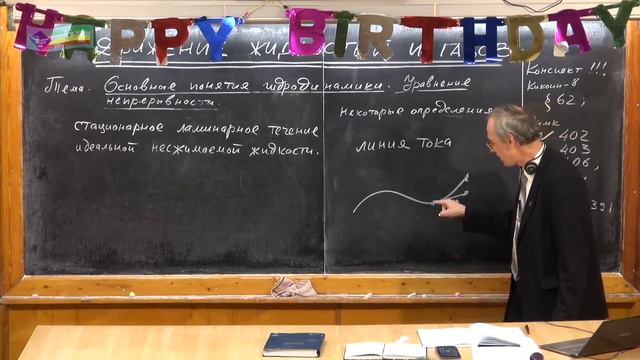 HAPPY BIRTHDAY
Движение жидкостей и газов
Тема. Основные понятия гидродинамики. Уравнение
непрерывности.
стационарное ламинарное течение
идеальной несжимаемой жидкости.
некоторые определения
линия тока
Конспект !!!
Кикоин-8
§ 62,
402
403